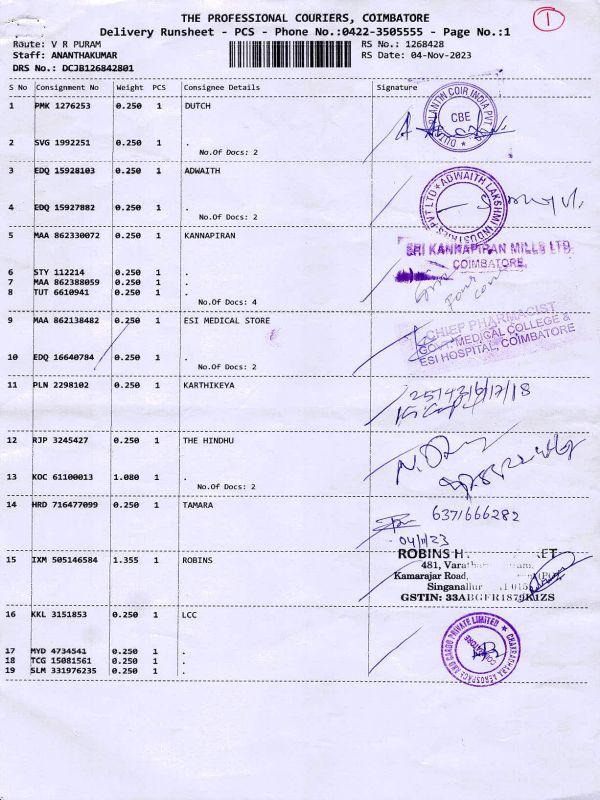 THE PROFESSIONAL COURIERS, COIMBATORE
1
Delivery Runsheet - PCS - Phone No.:0422-3505555 - Page No.:1
Route: V R PURAM
RS No.: 1268428
Staff: ANANTHAKUMAR
RS Date: 04-Nov-2023
DRS No.: DCJB126842801
S No Consignment No Weight PCS Consignee Details Signature
1 PMK 1276253 0.250 1 DUTCH
CBE
2 SVG 1992251 0.250 1 .
No.Of Docs: 2
3 EDQ 15928103 0.250 1 ADWAITH
ADWAITH LAKSHMI INDUSTRIES PVT LTD
4 EDQ 15927882 0.250 1 .
No.Of Docs: 2
5 MAA 862330072 0.250 1 KANNAPIRAN
SRI KANNAPIRAN MILLS LTD
COIMBATORE.
6 STY 112214 0.250 1 .
7 MAA 862388059 0.250 1 .
8 TUT 6610941 0.250 1 .
No.Of Docs: 4
Four
9 MAA 862138482 0.250 1 ESI MEDICAL STORE
CHIEF PHARMACIST
GOVT MEDICAL COLLEGE &
ESI HOSPITAL, COIMBATORE
10 EDQ 16640784 0.250 1 .
No.Of Docs: 2
11 PLN 2298102 0.250 1 KARTHIKEYA
12 RJP 3245427 0.250 1 THE HINDHU
13 KOC 61100013 1.080 1 .
No.Of Docs: 2
14 HRD 716477099 0.250 1 TAMARA
6371666282
04/11/23
15 IXM 505146584 1.355 1 ROBINS
ROBINS
481,
Kamarajar Road,
Singanallur
GSTIN: 33ABGFR1879K1ZS
16 KKL 3151853 0.250 1 LCC
CHAKRADHARA AEROSPACE AND CARGO PRIVATE LIMITED
17 MYD 4734541 0.250 1 .
18 TCG 15081561 0.250 1 .
19 SLM 331976235 0.250 1 .